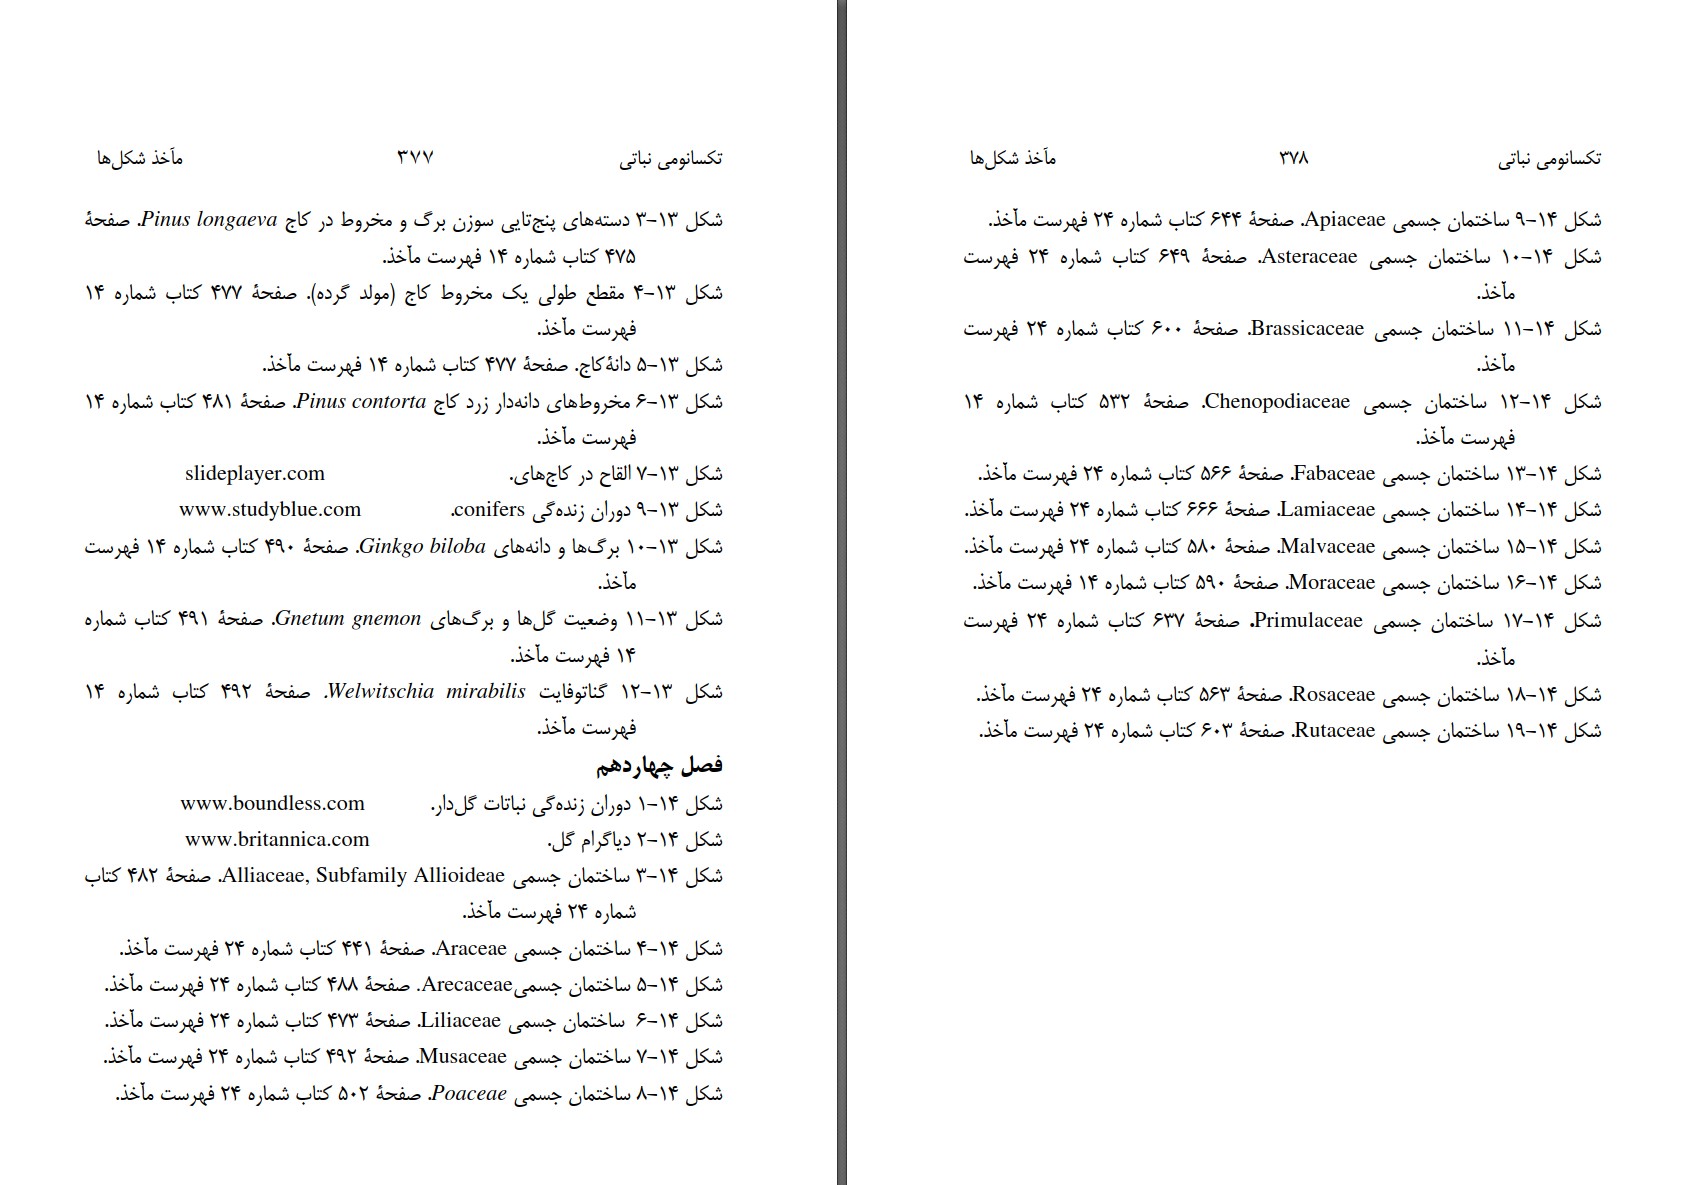 تکسانومی نباتی ۳۷۷ مآخذ شکل‌ها
شکل ۱۳–۳ دسته‌های پنج‌تایی سوزن برگ و مخروط در کاج Pinus longaeva. صفحۀ
۴۷۵ کتاب شماره ۱۴ فهرست مآخذ.
شکل ۱۳–۴ مقطع طولی یک مخروط کاج (مولد گرده). صفحۀ ۴۷۷ کتاب شماره ۱۴
فهرست مآخذ.
شکل ۱۳–۵ دانۀکاج. صفحۀ ۴۷۷ کتاب شماره ۱۴ فهرست مآخذ.
شکل ۱۳–۶ مخروط‌های دانه‌دار زرد کاج Pinus contorta. صفحۀ ۴۸۱ کتاب شماره ۱۴
فهرست مآخذ.
شکل ۱۳–۷ القاح در کاج‌های. slideplayer.com
شکل ۱۳–۹ دوران زنده‌گی conifers. www.studyblue.com
شکل ۱۳–۱۰ برگ‌ها و دانه‌های Ginkgo biloba. صفحۀ ۴۹۰ کتاب شماره ۱۴ فهرست
مآخذ.
شکل ۱۳–۱۱ وضعیت گل‌ها و برگ‌های Gnetum gnemon. صفحۀ ۴۹۱ کتاب شماره
۱۴ فهرست مآخذ.
شکل ۱۳–۱۲ گناتوفایت Welwitschia mirabilis. صفحۀ ۴۹۲ کتاب شماره ۱۴
فهرست مآخذ.
فصل چهاردهم
شکل ۱۴–۱ دوران زنده‌گی نباتات گل‌دار. www.boundless.com
شکل ۱۴–۲ دیاگرام گل. www.britannica.com
شکل ۱۴–۳ ساختمان جسمی Alliaceae, Subfamily Allioideae. صفحۀ ۴۸۲ کتاب
شماره ۲۴ فهرست مآخذ.
شکل ۱۴–۴ ساختمان جسمی Araceae. صفحۀ ۴۴۱ کتاب شماره ۲۴ فهرست مآخذ.
شکل ۱۴–۵ ساختمان جسمیArecaceae. صفحۀ ۴۸۸ کتاب شماره ۲۴ فهرست مآخذ.
شکل ۱۴–۶ ساختمان جسمی Liliaceae. صفحۀ ۴۷۳ کتاب شماره ۲۴ فهرست مآخذ.
شکل ۱۴–۷ ساختمان جسمی Musaceae. صفحۀ ۴۹۲ کتاب شماره ۲۴ فهرست مآخذ.
شکل ۱۴–۸ ساختمان جسمی Poaceae. صفحۀ ۵۰۲ کتاب شماره ۲۴ فهرست مآخذ.
تکسانومی نباتی ۳۷۸ مآخذ شکل‌ها
شکل ۱۴–۹ ساختمان جسمی Apiaceae. صفحۀ ۶۴۴ کتاب شماره ۲۴ فهرست مآخذ.
شکل ۱۴–۱۰ ساختمان جسمی Asteraceae. صفحۀ ۶۴۹ کتاب شماره ۲۴ فهرست
مآخذ.
شکل ۱۴–۱۱ ساختمان جسمی Brassicaceae. صفحۀ ۶۰۰ کتاب شماره ۲۴ فهرست
مآخذ.
شکل ۱۴–۱۲ ساختمان جسمی Chenopodiaceae. صفحۀ ۵۳۲ کتاب شماره ۱۴
فهرست مآخذ.
شکل ۱۴–۱۳ ساختمان جسمی Fabaceae. صفحۀ ۵۶۶ کتاب شماره ۲۴ فهرست مآخذ.
شکل ۱۴–۱۴ ساختمان جسمی Lamiaceae. صفحۀ ۶۶۶ کتاب شماره ۲۴ فهرست مآخذ.
شکل ۱۴–۱۵ ساختمان جسمی Malvaceae. صفحۀ ۵۸۰ کتاب شماره ۲۴ فهرست مآخذ.
شکل ۱۴–۱۶ ساختمان جسمی Moraceae. صفحۀ ۵۹۰ کتاب شماره ۱۴ فهرست مآخذ.
شکل ۱۴–۱۷ ساختمان جسمی Primulaceae. صفحۀ ۶۳۷ کتاب شماره ۲۴ فهرست
مآخذ.
شکل ۱۴–۱۸ ساختمان جسمی Rosaceae. صفحۀ ۵۶۳ کتاب شماره ۲۴ فهرست مآخذ.
شکل ۱۴–۱۹ ساختمان جسمی Rutaceae. صفحۀ ۶۰۳ کتاب شماره ۲۴ فهرست مآخذ.